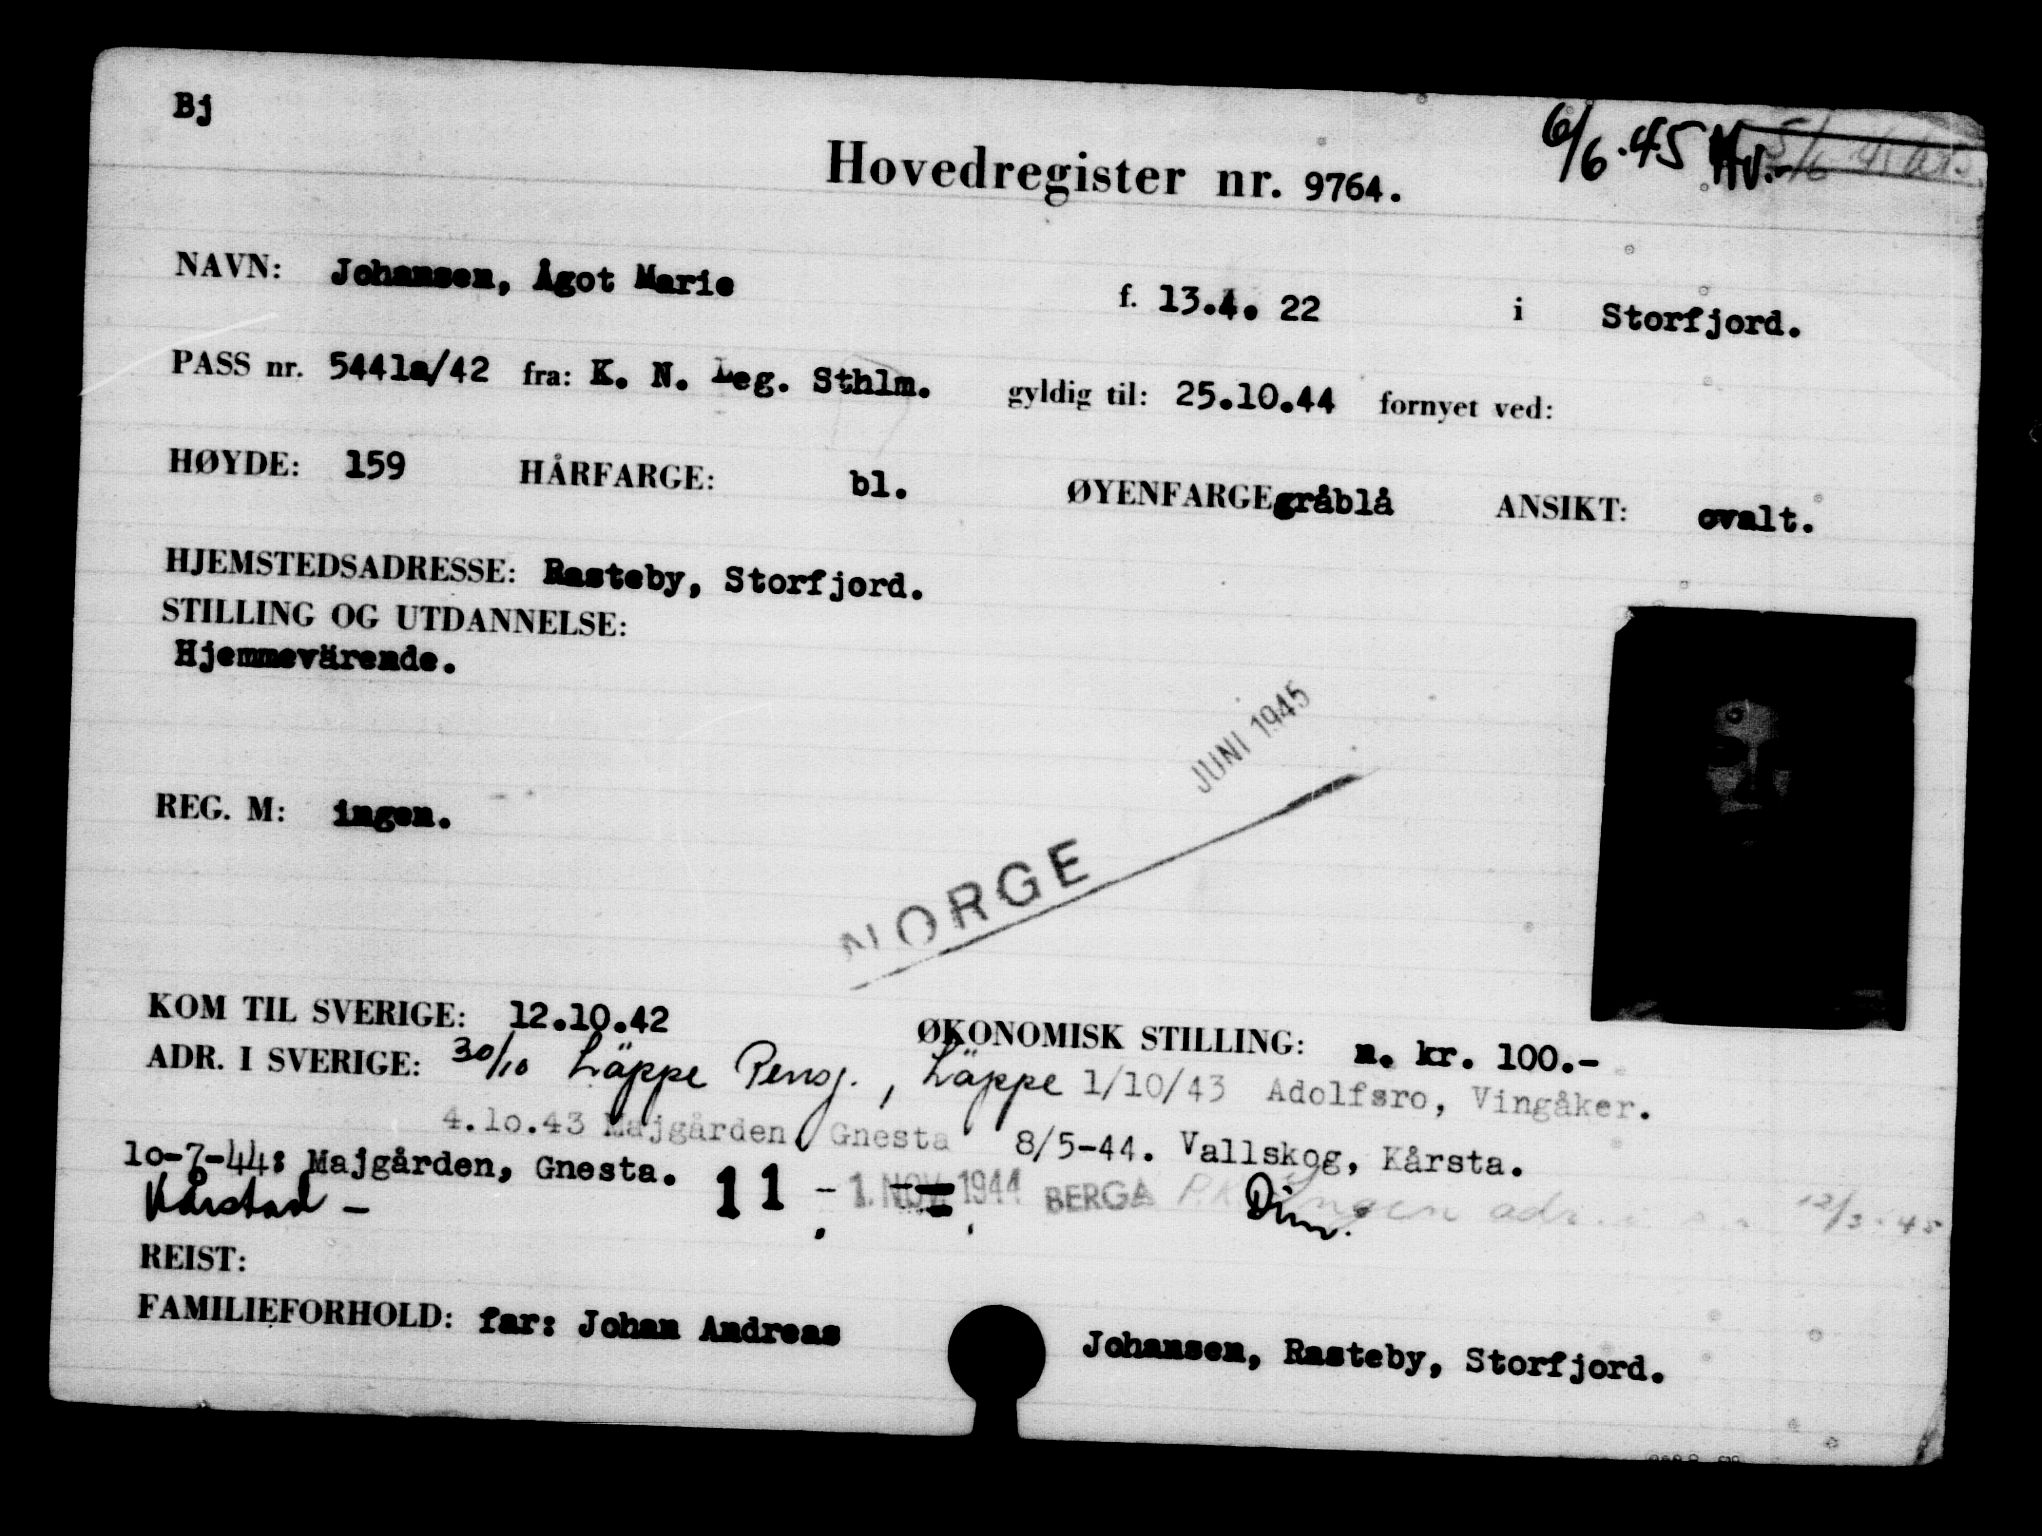 Bj
6/6.45 Hv.
Hovedregister nr. 9764.
NAVN: Johansen, Ågot Marie f. 13.4. 22 i Storfjord.
PASS nr. 5441a/42 fra: K. N. Leg. Sthlm. gyldig til: 25.10.44 fornyet ved:
HØYDE: 159 HÅRFARGE: bl. ØYENFARGE gråblå ANSIKT: ovalt.
HJEMSTEDSADRESSE: Rasteby, Storfjord.
STILLING OG UTDANNELSE:
Hjemmevärende.
JUNI 1945
REG. M: ingen.
NORGE
KOM TIL SVERIGE: 12.10.42 ØKONOMISK STILLING: n. kr. 100.-
ADR. I SVERIGE: 30/10 Läppe Pensj., Läppe 1/10/43 Adolfsro, Vingåker.
4.10.43 Majgården, Gnesta 8/5-44. Vallskog, Kårsta.
10-7-44: Majgården, Gnesta. 11 - 1. NOV. 1944 BERGA Dim. Ingen adr. 12/3.45
Kårstad -
REIST:
FAMILIEFORHOLD: far: Johan Andreas Johansen, Rasteby, Storfjord.